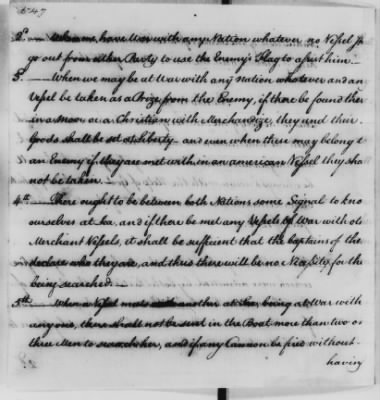 2d — When we have War with any Nation whatever no Vessel
go out from either Party to use the Enemy's Flag to assist him.
3. — When we may be at War with any nation whatever and an
Vessel be taken as a Prize from the Enemy, if there be found ther
in a Moor or a Christian with Merchandize, they and their
Goods shall be set at Liberty and even when these may belong t
an Enemy if they are met with in an american Vessel they sha
not be taken.
4th — There ought to be between both Nations some Signal to kno
ourselves at Sea, and if there be met any Vessels of War with
Merchant Vessels, it shall be sufficient that the Captains of the
declare who they are, and thus there will be no Necessity for the
being searched.
5th — When a Vessel meets another at Sea being at War with
anyone, there shall not be sent in the Boat more than two or
three Men to search her, and if any Cannon be fired without
having